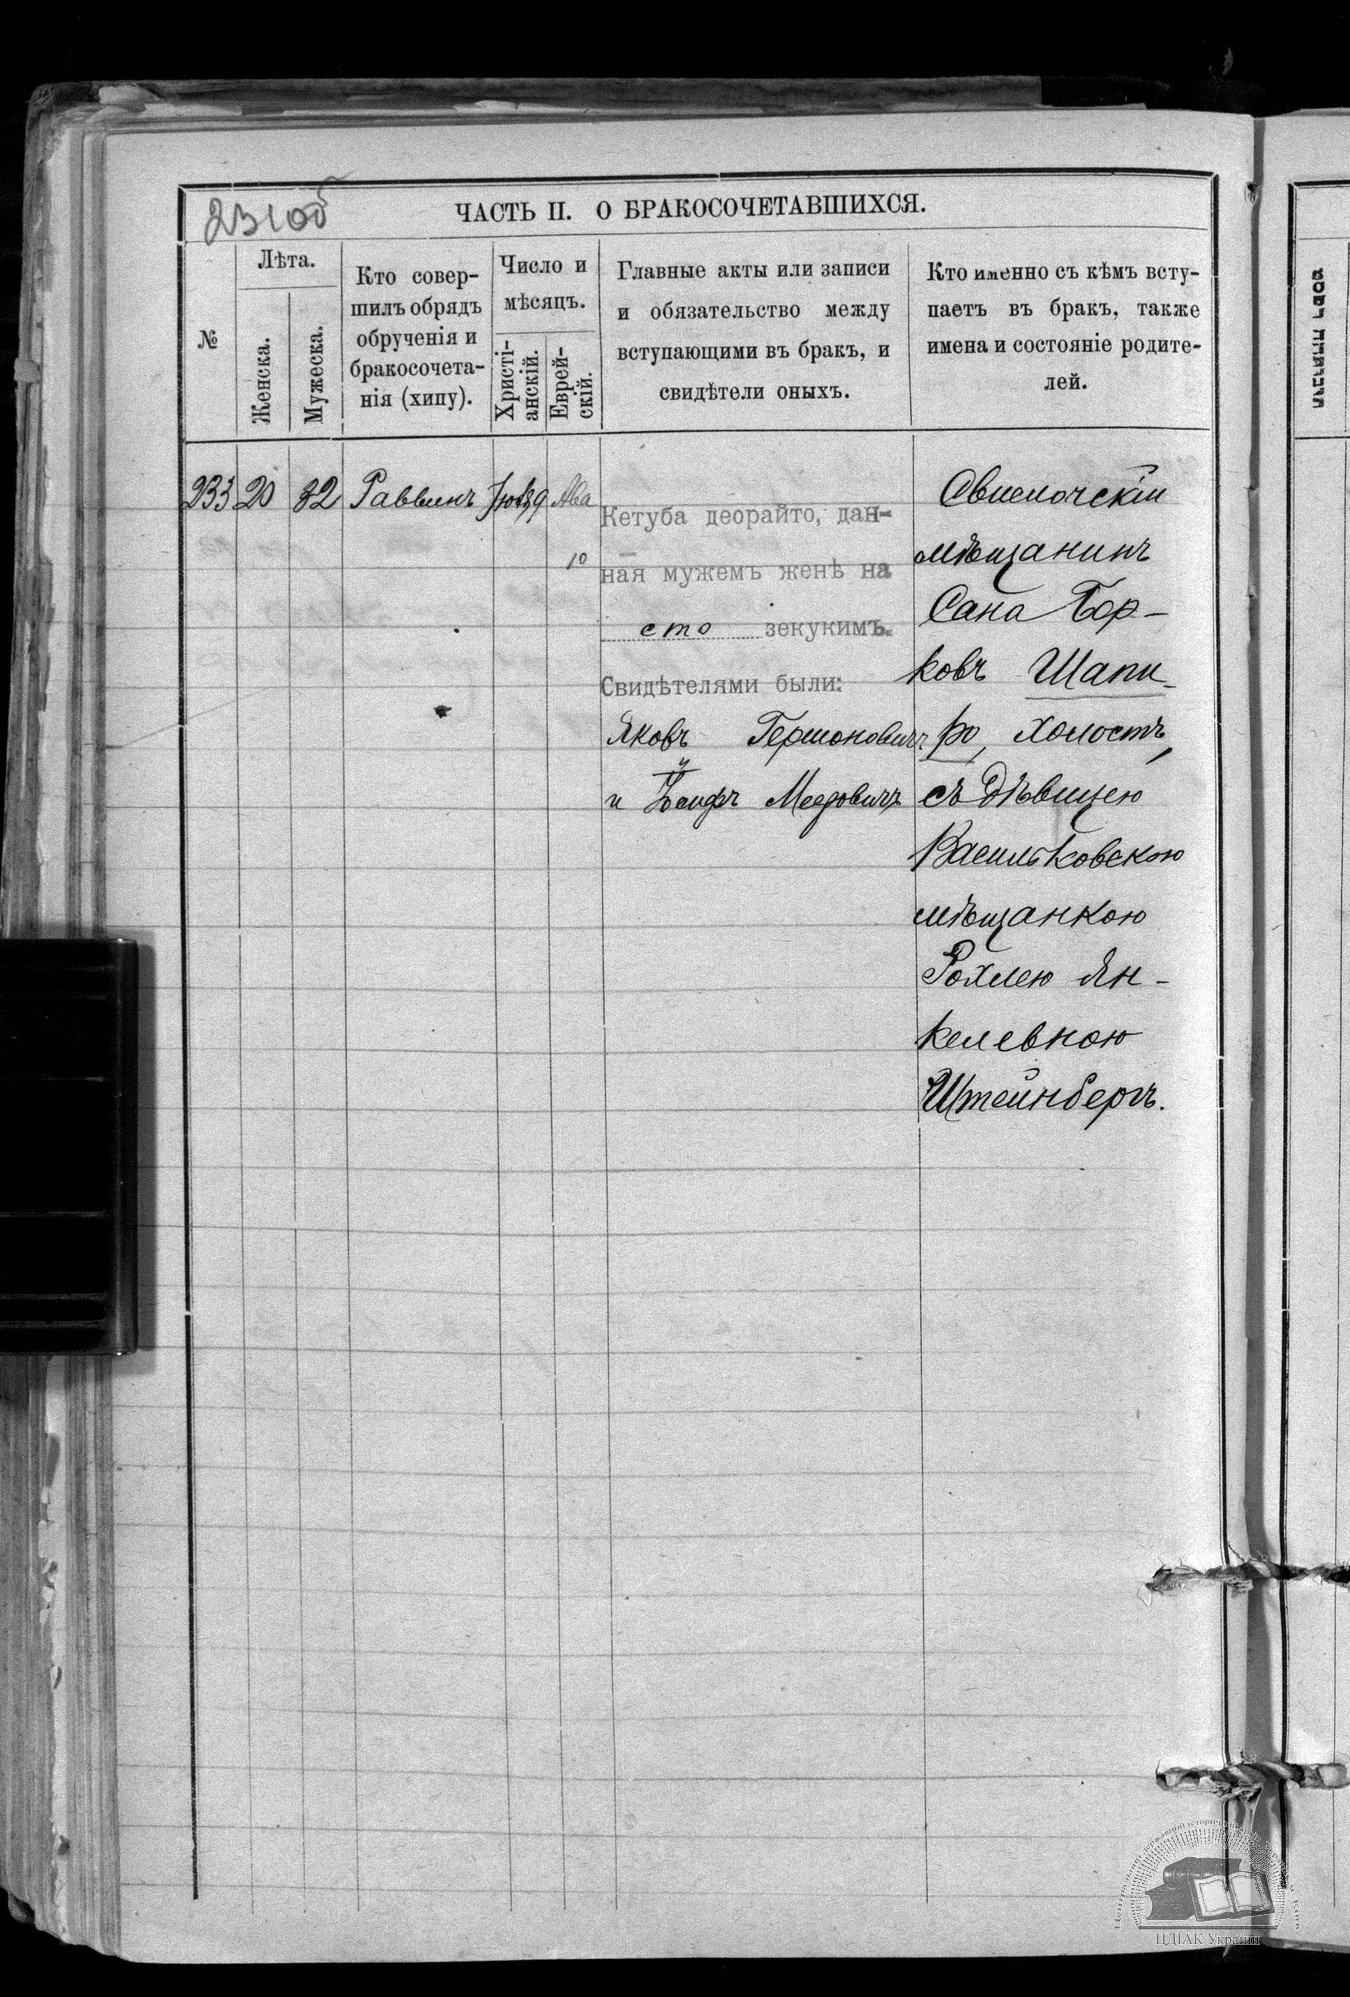 231об
ЧАСТЬ II. О БРАКОСОЧЕТАВШИХСЯ.
№
Лѣта.
Женска.
Мужеска.
Кто совер-
шилъ обрядъ
обрученія и
бракосочета-
нія (хипу).
Число и
мѣсяцъ.
Христі-
анскій.
Еврей-
скій.
Главные акты или записи
и обязательство между
вступающими въ бракъ, и
свидѣтели оныхъ.
Кто именно съ кѣмъ всту-
паетъ въ бракъ, также
имена и состояніе родите-
лей.
233
20
32
Раввинъ
Ава
10
Кетуба деорайто, дан-
ная мужемъ женѣ на
сто зекукимъ.
Свидѣтелями были:
Яковъ Гершоновичъ
и Іосифъ Мееровичъ
мѣщанинъ
Сана Бор-
ковъ Шапи-
ро, холостъ,
съ дѣвицею
Васильковскою
мѣщанкою
Рохлею Ян-
келевною
Штейнбергъ.
ЦДІАК України